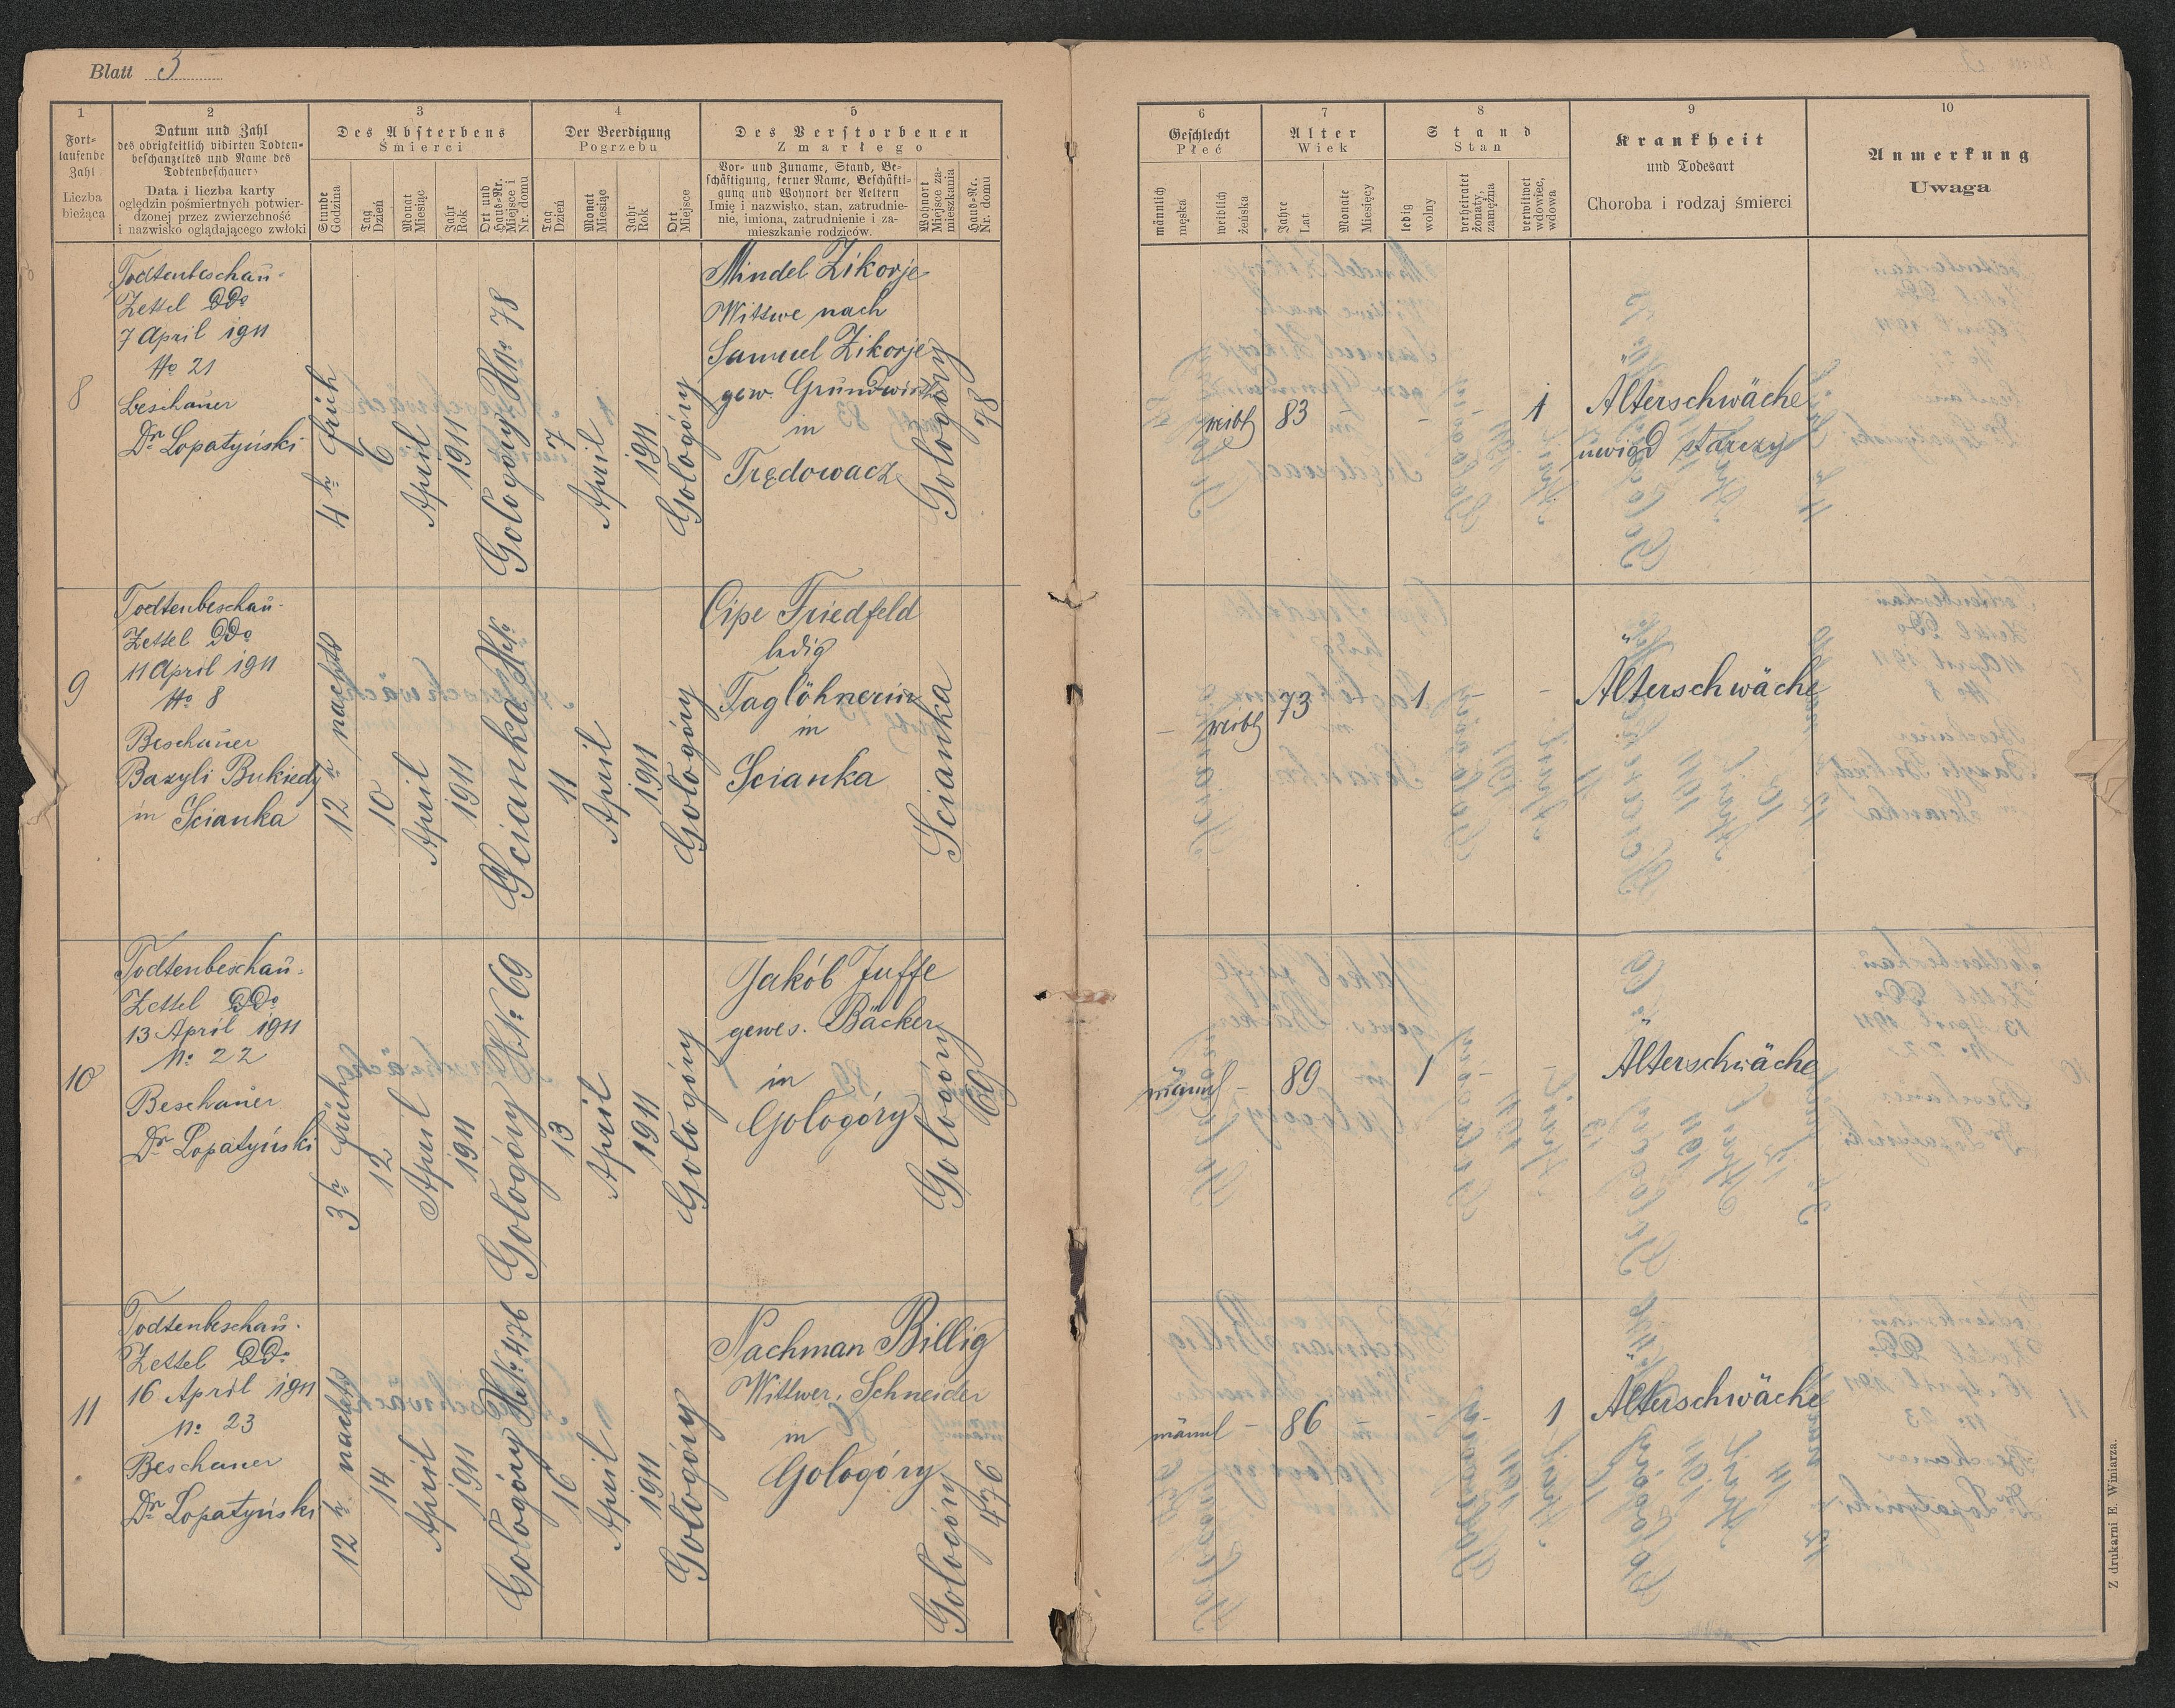 Blatt 3
1
Fort-
laufende
Zahl
Liczba
bieżąca
2
Datum und Zahl
des obrigkeitlich vidirten Todten-
beschauzettels und Name des
Todtenbeschauers
Data i liczba karty
oględzin pośmiertnych potwier-
dzonej przez zwierzchność
i nazwisko oglądającego zwłoki
3
Des Absterbens
Śmierci
Stunde
Godzina
Tag
Dzień
Monat
Miesiąc
Jahr
Rok
Ort und
Haus-Nr.
Miejsce i
Nr. domu
4
Der Beerdigung
Pogrzebu
Tag
Dzień
Monat
Miesiąc
Jahr
Rok
Ort
Miejsce
5
Des Verstorbenen
Zmarłego
Vor- und Zuname, Stand, Be-
schäftigung, ferner Name, Beschäfti-
gung und Wohnort der Aeltern
Imię i nazwisko, stan, zatrudnie-
nie, imiona, zatrudnienie i za-
mieszkanie rodziców.
Wohnort
Miejsce za-
mieszkania
Haus-Nr.
Nr. domu
6
Geschlecht
Płeć
männlich
męska
weiblich
żeńska
7
Alter
Wiek
Jahre
Lat
Monate
Miesięcy
8
Stand
Stan
ledig
wolny
verheiratet
żonaty,
zamężna
verwitwet
wdowiec,
wdowa
9
Krankheit
und Todesart
Choroba i rodzaj śmierci
10
Anmerkung
Uwaga
8
Todtenbeschau-
Zettel DDo
7 April 1911
No 21
Beschauer
Dr Lopatyński
4 h früh
6
April
1911
Gologóry HNo 78
7
April
1911
Gologóry
Mindel Zikorje
Wittwe nach
Samuel Zikorje
gew. Grundwirth
in
Trędowacz
Gologóry
78
weibl
83
-
1
Älterschwäche
uwiąd starczy
9
Todtenbeschau-
Zettel DDo
11 April 1911
No 8
Beschauer
Bazyli Bukiedy
in Scianka
12 h nachts
10
April
1911
Scianka
11
April
1911
Gologóry
Cipe Friedfeld
ledig
Taglöhnerin
in
Scianka
Scianka
-
weibl
73
1
-
Älterschwäche
10
Todtenbeschau-
Zettel DDo
13 April 1911
No 22
Beschauer
Dr Lopatyński
3 h früh
12
April
1911
Gologóry HNo 69
13
April
1911
Gologóry
Jakób Juffe
gewes. Bäcker
in
Gologóry
Gologóry
69
männl
-
89
1
Älterschwäche
11
Todtenbeschau-
Zettel DDo
16 April 1911
No 23
Beschauer
Dr Lopatyński
12 h nachts
14
April
1911
Gologóry HNo 476
16
April
1911
Gologóry
Nachman Billig
Wittwer, Schneider
in
Gologóry
Gologóry
476
männl
-
86
-
1
Älterschwäche
Z drukarni E. Winiarza.